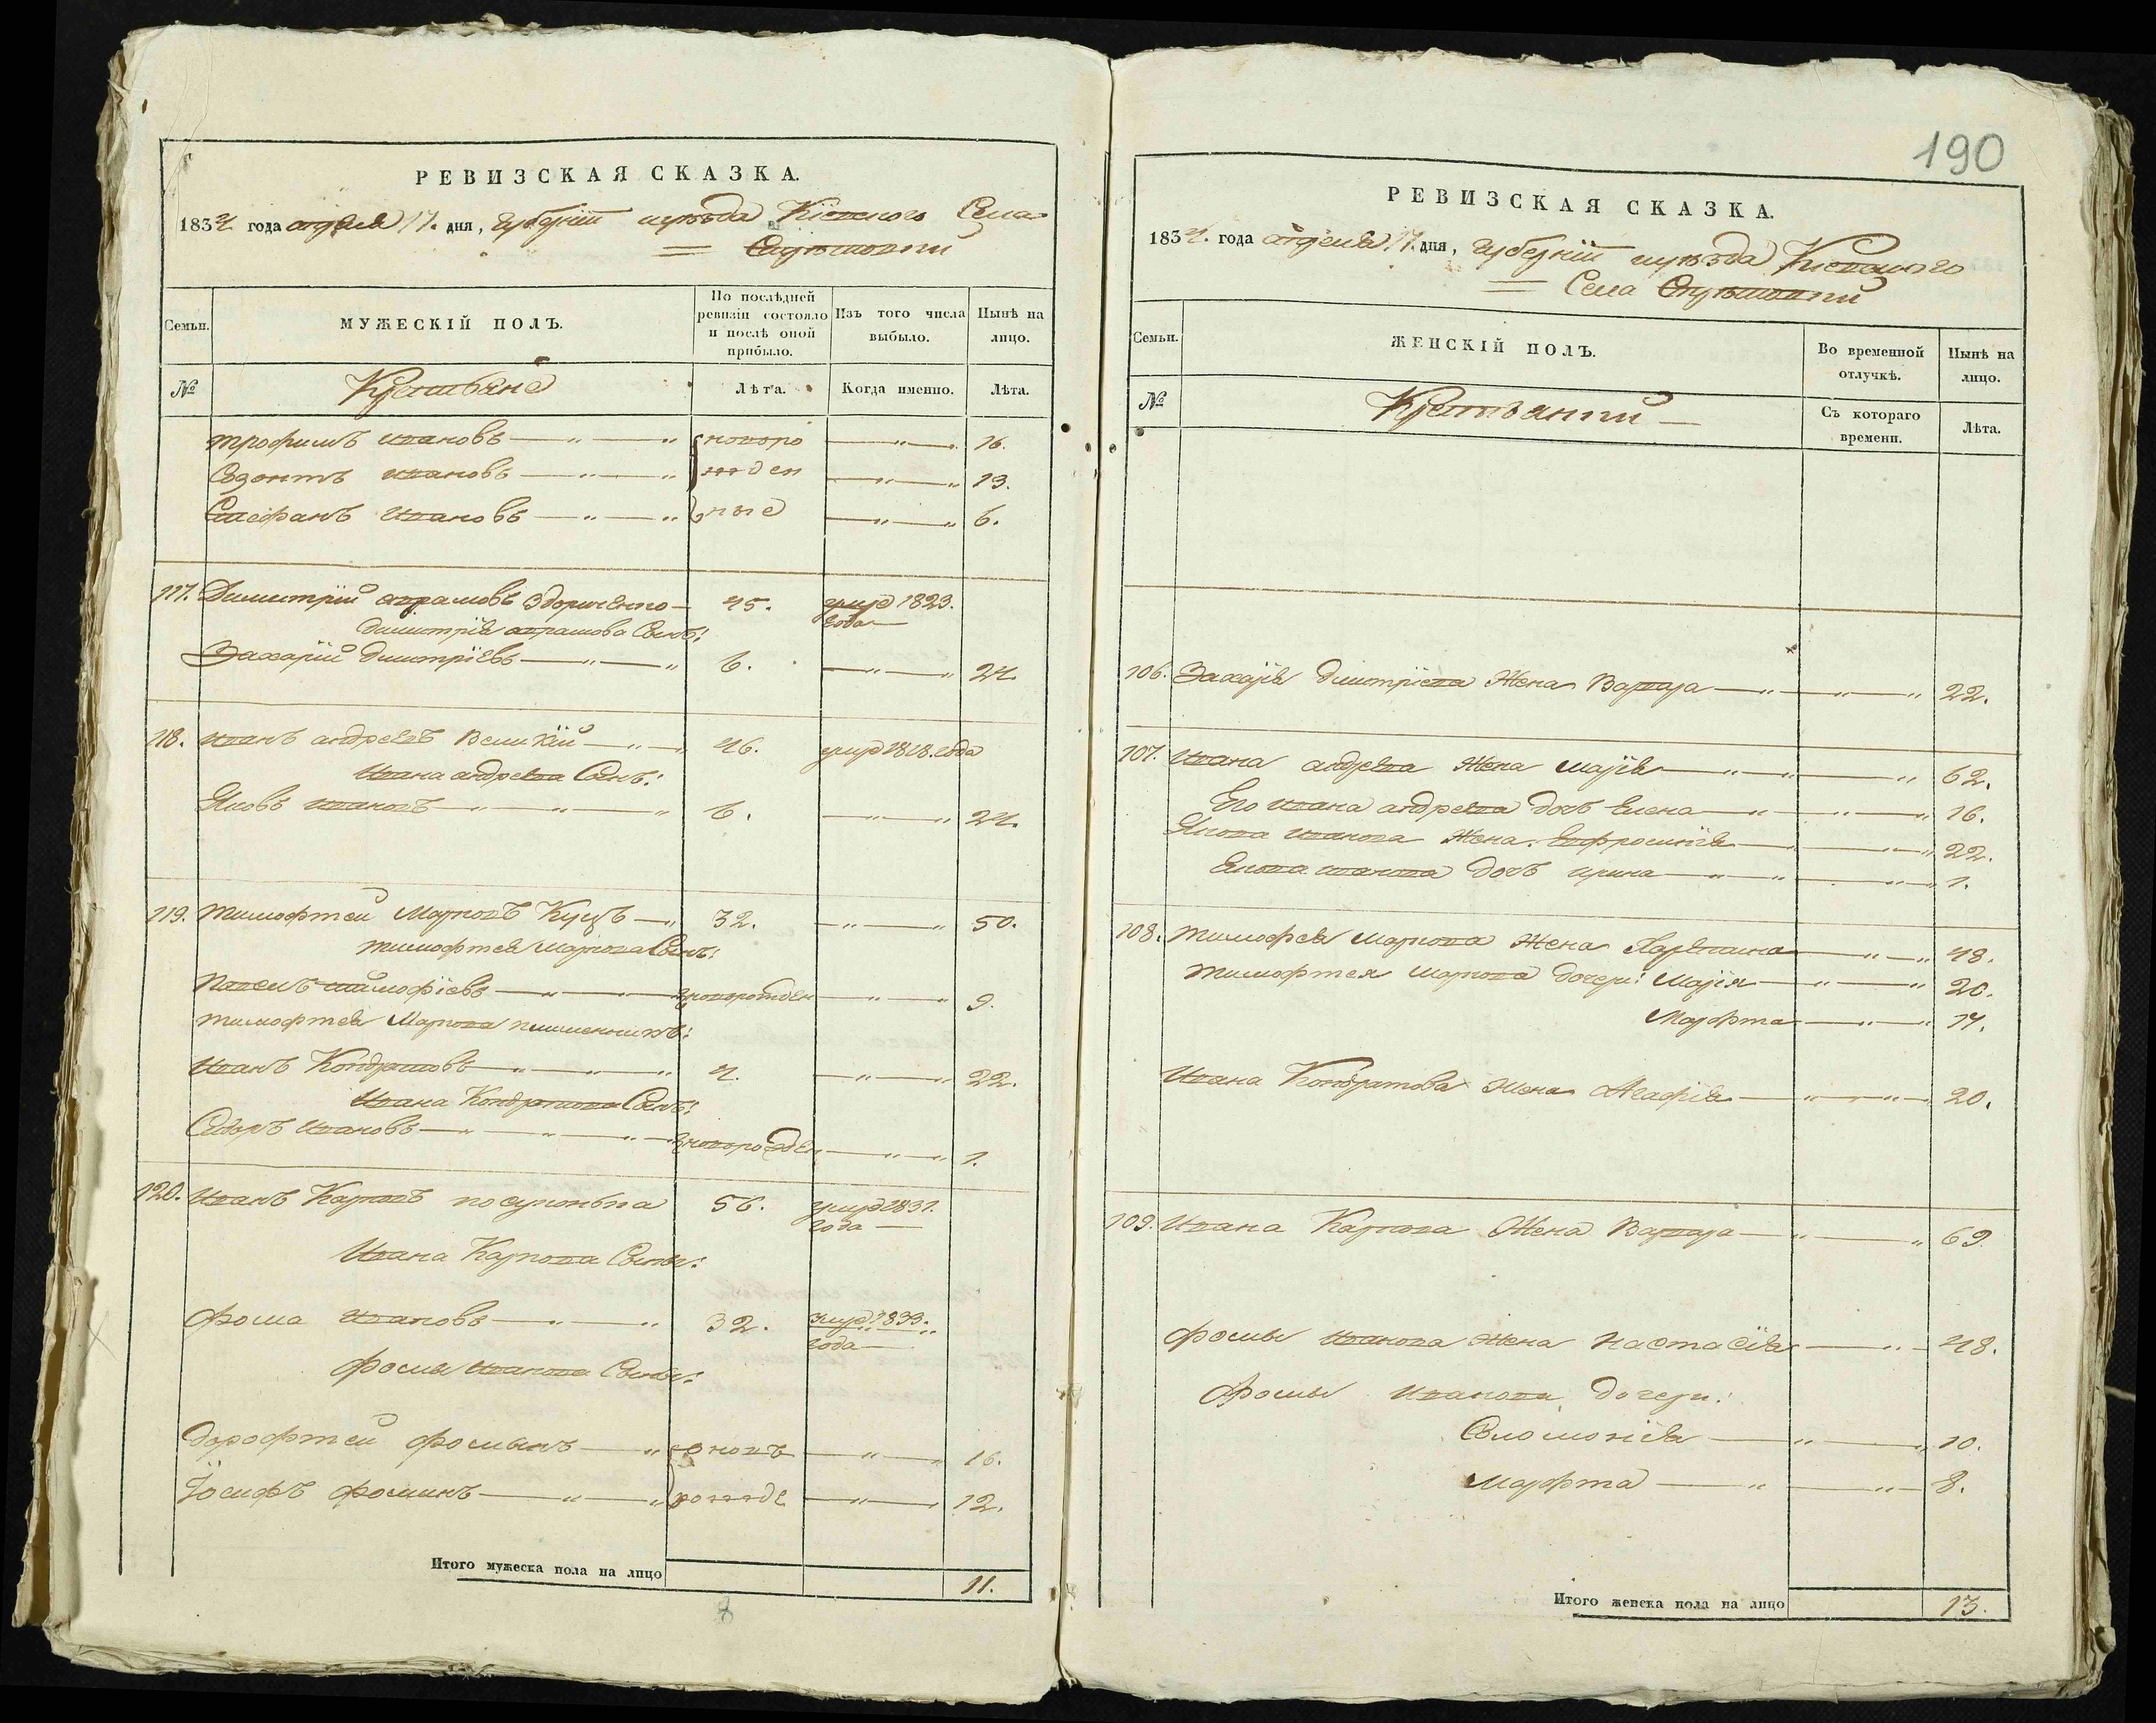 РЕВИЗСКАЯ СКАЗКА.
1834 года апреля 17. дня, губернiи иуѣзда Кiевского Села
Мужескiй полъ
Семьи.
МУЖЕСКІЙ ПОЛЪ.
По послѣдней ревизіи состояло и послѣ оной прибыло.
Изъ того числа выбыло.
Нынѣ на лицо.
№
Крестьяне
Лѣта.
Когда именно.
Лѣта.
Трофимъ Ивановъ — " — " новоро — " — 16.
Созонтъ Ивановъ — " — " жден — " — " 13.
Стефанъ Ивановъ — " — " ные — " — " 6.
117. Димитрiй Аврамовъ — 45. умре 1823.
года —
Димитрiя Аврамова Сынъ:
Захарiй Дмитрiевъ — " — " 6. — " 24.
118. Иванъ Андреевъ Великiй — " — " 46. умре 1818. года
Ивана Андреева Сынъ:
Яковъ Ивановъ — " — " — " 6. — " — " 24.
119. Тимофтей Марковъ Куцъ — " 32. — " — " 50.
Тимофтея Маркова Сынъ:
Павелъ Тимофiевъ — " — " — новорожден — " — " 9.
Тимофтея Маркова племенникъ:
Иванъ Кондратовъ — " — " — " 4. — " — " 22.
Ивана Кондратова Сынъ:
Сидоръ Ивановъ — " — " — " — новорожден — " — " 1.
120. Иванъ Карповъ 56. умре 1831.
года —
Ивана Карпова Сыны:
Фома Ивановъ — " — " 32. умре 1833.
года —
Фомы Иванова Сыны:
Дорофтей Фоминъ — " новъ — " — " 16.
Іосифъ Фоминъ — " — " рожде — " — " 12.
Итого мужеска пола на лицо 11.
190
РЕВИЗСКАЯ СКАЗКА.
1834. года апреля 17. дня, губернiи иуѣзда Кiевского
Села
Семьи.
ЖЕНСКІЙ ПОЛЪ.
Во временной отлучкѣ.
Нынѣ на лицо.
№
Крестьянки —
Съ котораго времени.
Лѣта.
106. Захарiя Дмитрiева Жена Варвара — " — " — " 22.
107. Ивана Андреева Жена Марiя — " — " — " 62.
Его Ивана Андреева дочь Елена — " — " — " 16.
Якова Иванова Жена Евфросинiя — " — " 22.
Якова Иванова дочь Ирина — " — " — " 1.
108. Тимофея Маркова Жена — " — " 48.
Тимофтея Маркова дочери: Марiя — " — " 20.
Марфта — " — " 17.
Ивана Кондратова Жена Агафiя — " — " — 20.
109. Ивана Карпова Жена Варвара — " — " 69.
Фомы Иванова Жена Настасiя — " — 48.
Фомы Иванова дочери:
Соломонiя — " — " 10.
Марфта — " — " — 8.
Итого женска пола на лицо 13.